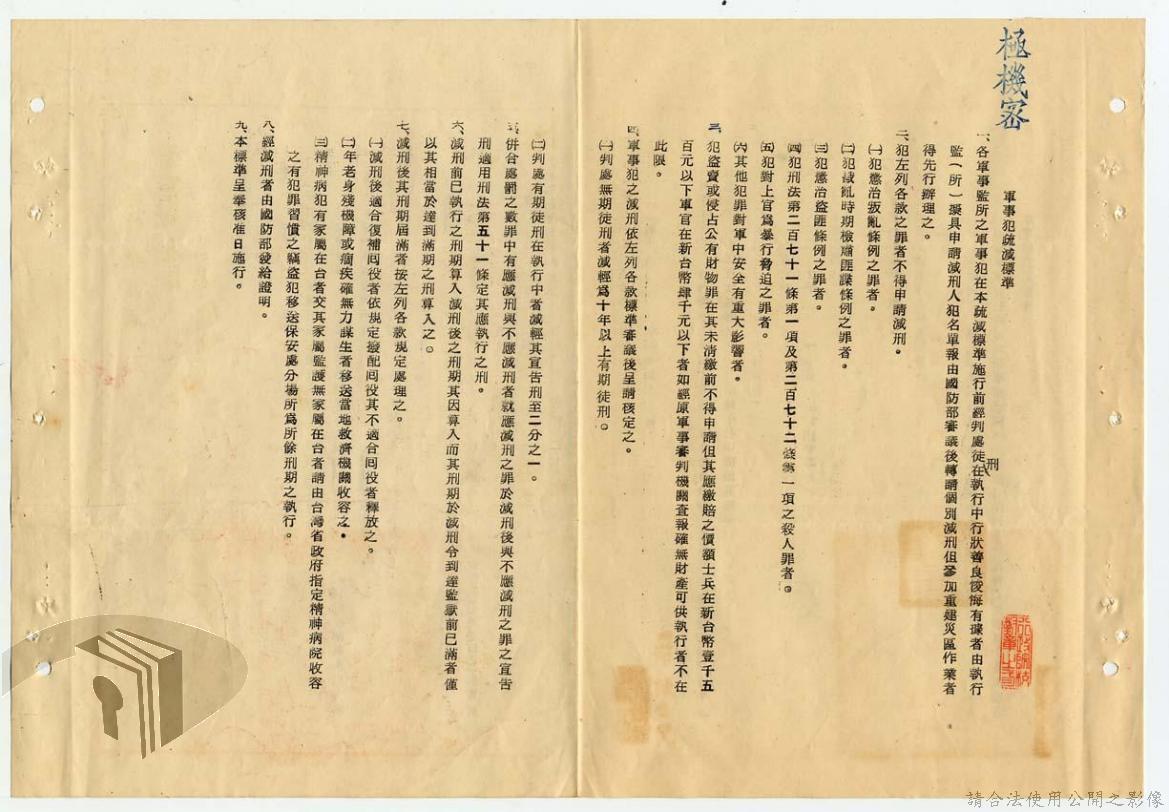 極機密
軍事犯疏減標準
一、各軍事監所之軍事犯在本疏減標準施行前經判處徒刑在執行中行狀善良悛悔有據者由執行
監(所)擬具申請減刑人犯名單報由國防部審議後轉請個別減刑但參加重建災區作業者
得先行辦理之。
二、犯左列各款之罪者不得申請減刑。
㈠犯懲治叛亂條例之罪者。
㈡犯戡亂時期檢肅匪諜條例之罪者。
㈢犯懲治盜匪條例之罪者。
㈣犯刑法第二百七十一條第一項及第二百七十二條第一項之殺人罪者。
㈤犯對上官為暴行脅迫之罪者。
㈥其他犯罪對軍中安全有重大影響者。
三、犯盜賣或侵占公有財物罪在其未清繳前不得申請但其應繳賠之價額士兵在新台幣壹千五
百元以下軍官在新台幣肆千元以下者如經原軍事審判機關查報確無財產可供執行者不在
此限。
四、軍事犯之減刑依左列各款標準審議後呈請核定之。
㈠判處無期徒刑者減輕為十年以上有期徒刑。
㈡判處有期徒刑在執行中者減輕其宣告刑至二分之一。
五、併合處罰之數罪中有應減刑與不應減刑者就應減刑之罪於減刑後與不應減刑之罪之宣告
刑適用刑法第五十一條定其應執行之刑。
六、減刑前已執行之刑期算入減刑後之刑期其因算入而其刑期於減刑令到達監獄前已滿者僅
以其相當於達到滿期之刑算入之。
七、減刑後其刑期屆滿者按左列各款規定處理之。
㈠減刑後適合復補回役者依規定撥配回役其不適合回役者釋放之。
㈡年老身殘機障或痼疾確無力謀生者移送當地救濟機關收容之。
㈢精神病犯有家屬在台者交其家屬監護無家屬在台者請由台灣省政府指定精神病院收容
之有犯罪習慣之竊盜犯移送保安處分場所為所餘刑期之執行。
八、經減刑者由國防部發給證明。
九、本標準呈奉核准日施行。
請合法使用公開之影像